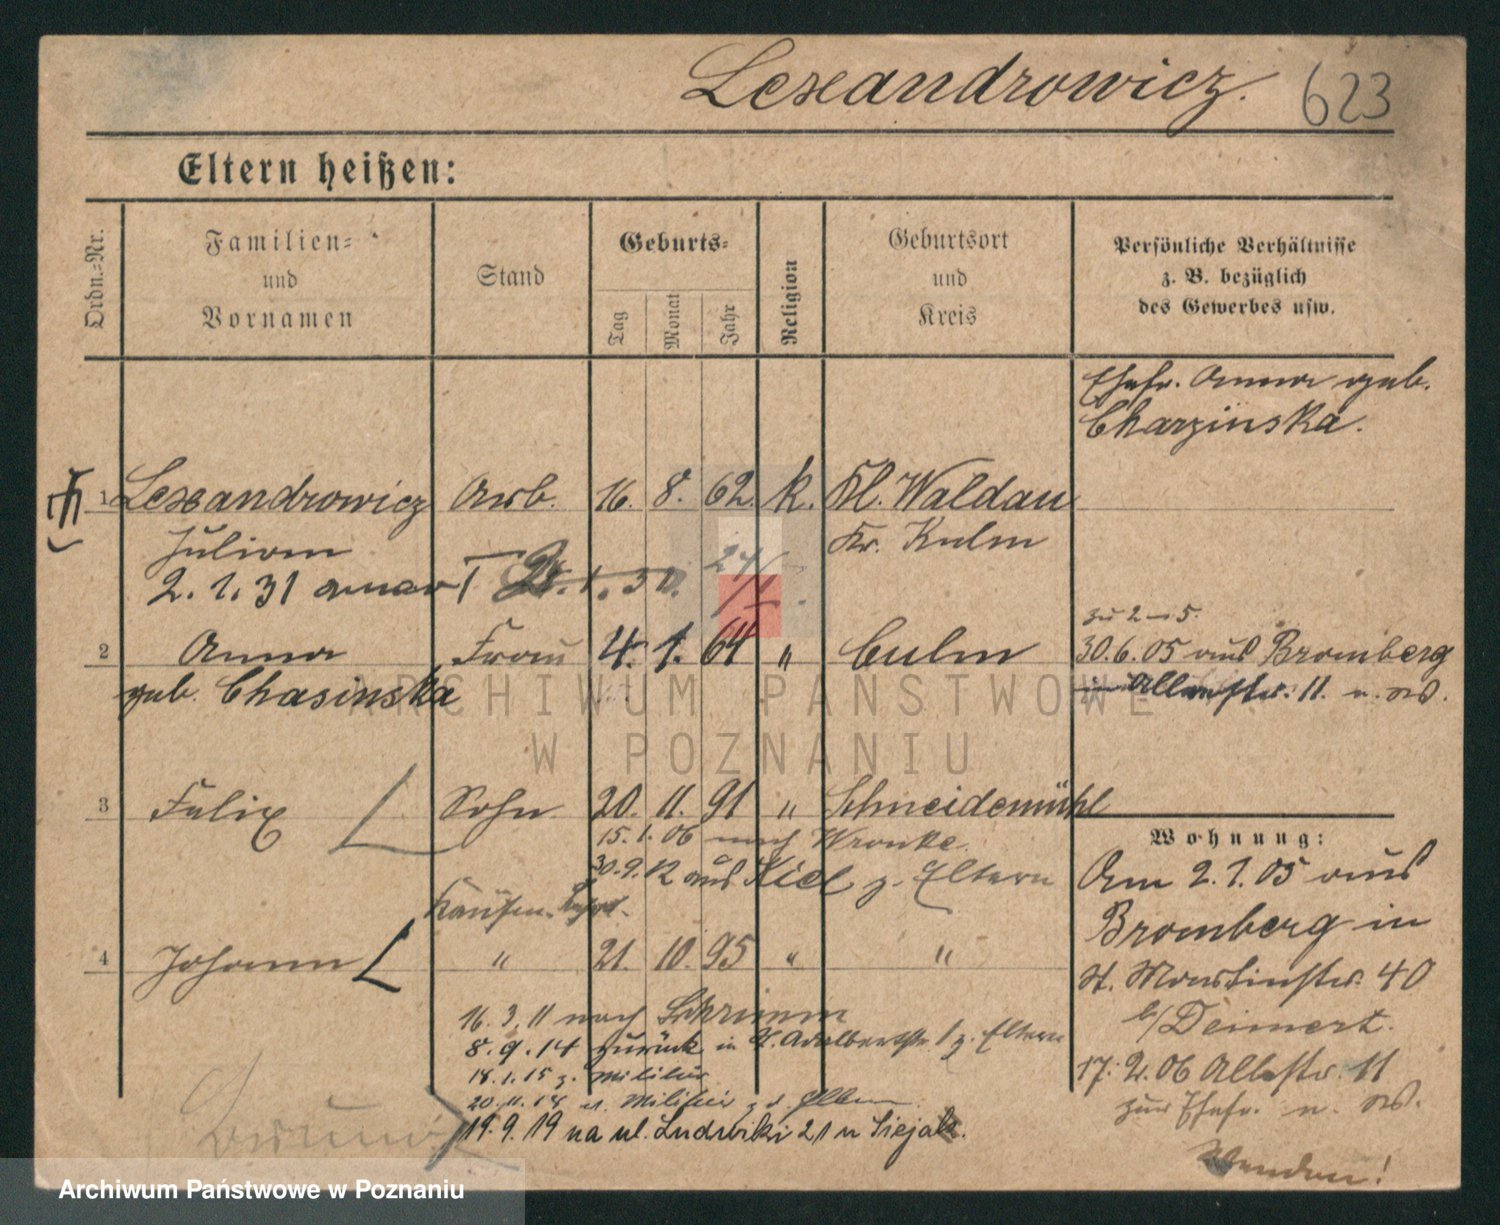 Lexandrowicz. 623
Eltern heißen:
Ordn.-Nr.
Familien-
und
Vornamen
Stand
Geburts-
Tag
Monat
Jahr
Religion
Geburtsort
und
Kreis
Persönliche Verhältnisse
z. B. bezüglich
des Gewerbes usw.
Ehefr. Anna geb.
Charzinska.
1 Lexandrowicz Arb. 16. 8. 62. k. Kl. Waldau
Julian Kr. Kulm
2. 1. 31
2 Anna Frau 4. 1. 64 " Culm
geb. Chasinska
zu 2-5.
30.6.05 aus Bromberg
in Allerstr. 11.
3 Felix Sohn 20. 11. 91 " Schneidemühl
15.1.06 nach Wronke.
30.9.12 aus Kiel z. Eltern
4 Johann " 21. 10. 95 " "
16.3.11 nach Schrimm
8.9.14 zurück in St. Adalbertstr. 1 z. Eltern
18.1.15 z. Militär
20.11.18 v. Militär z. d. Eltern
19.9.19 na ul. Ludwiki 21 u Siejak.
Wohnung:
Am 2.1.05 aus
Bromberg in
St. Martinstr. 40
b/Deinert.
17.2.06 Allerstr. 11
zur Ehefr.
Wenden!
ARCHIWUM PAŃSTWOWE
W POZNANIU
Archiwum Państwowe w Poznaniu